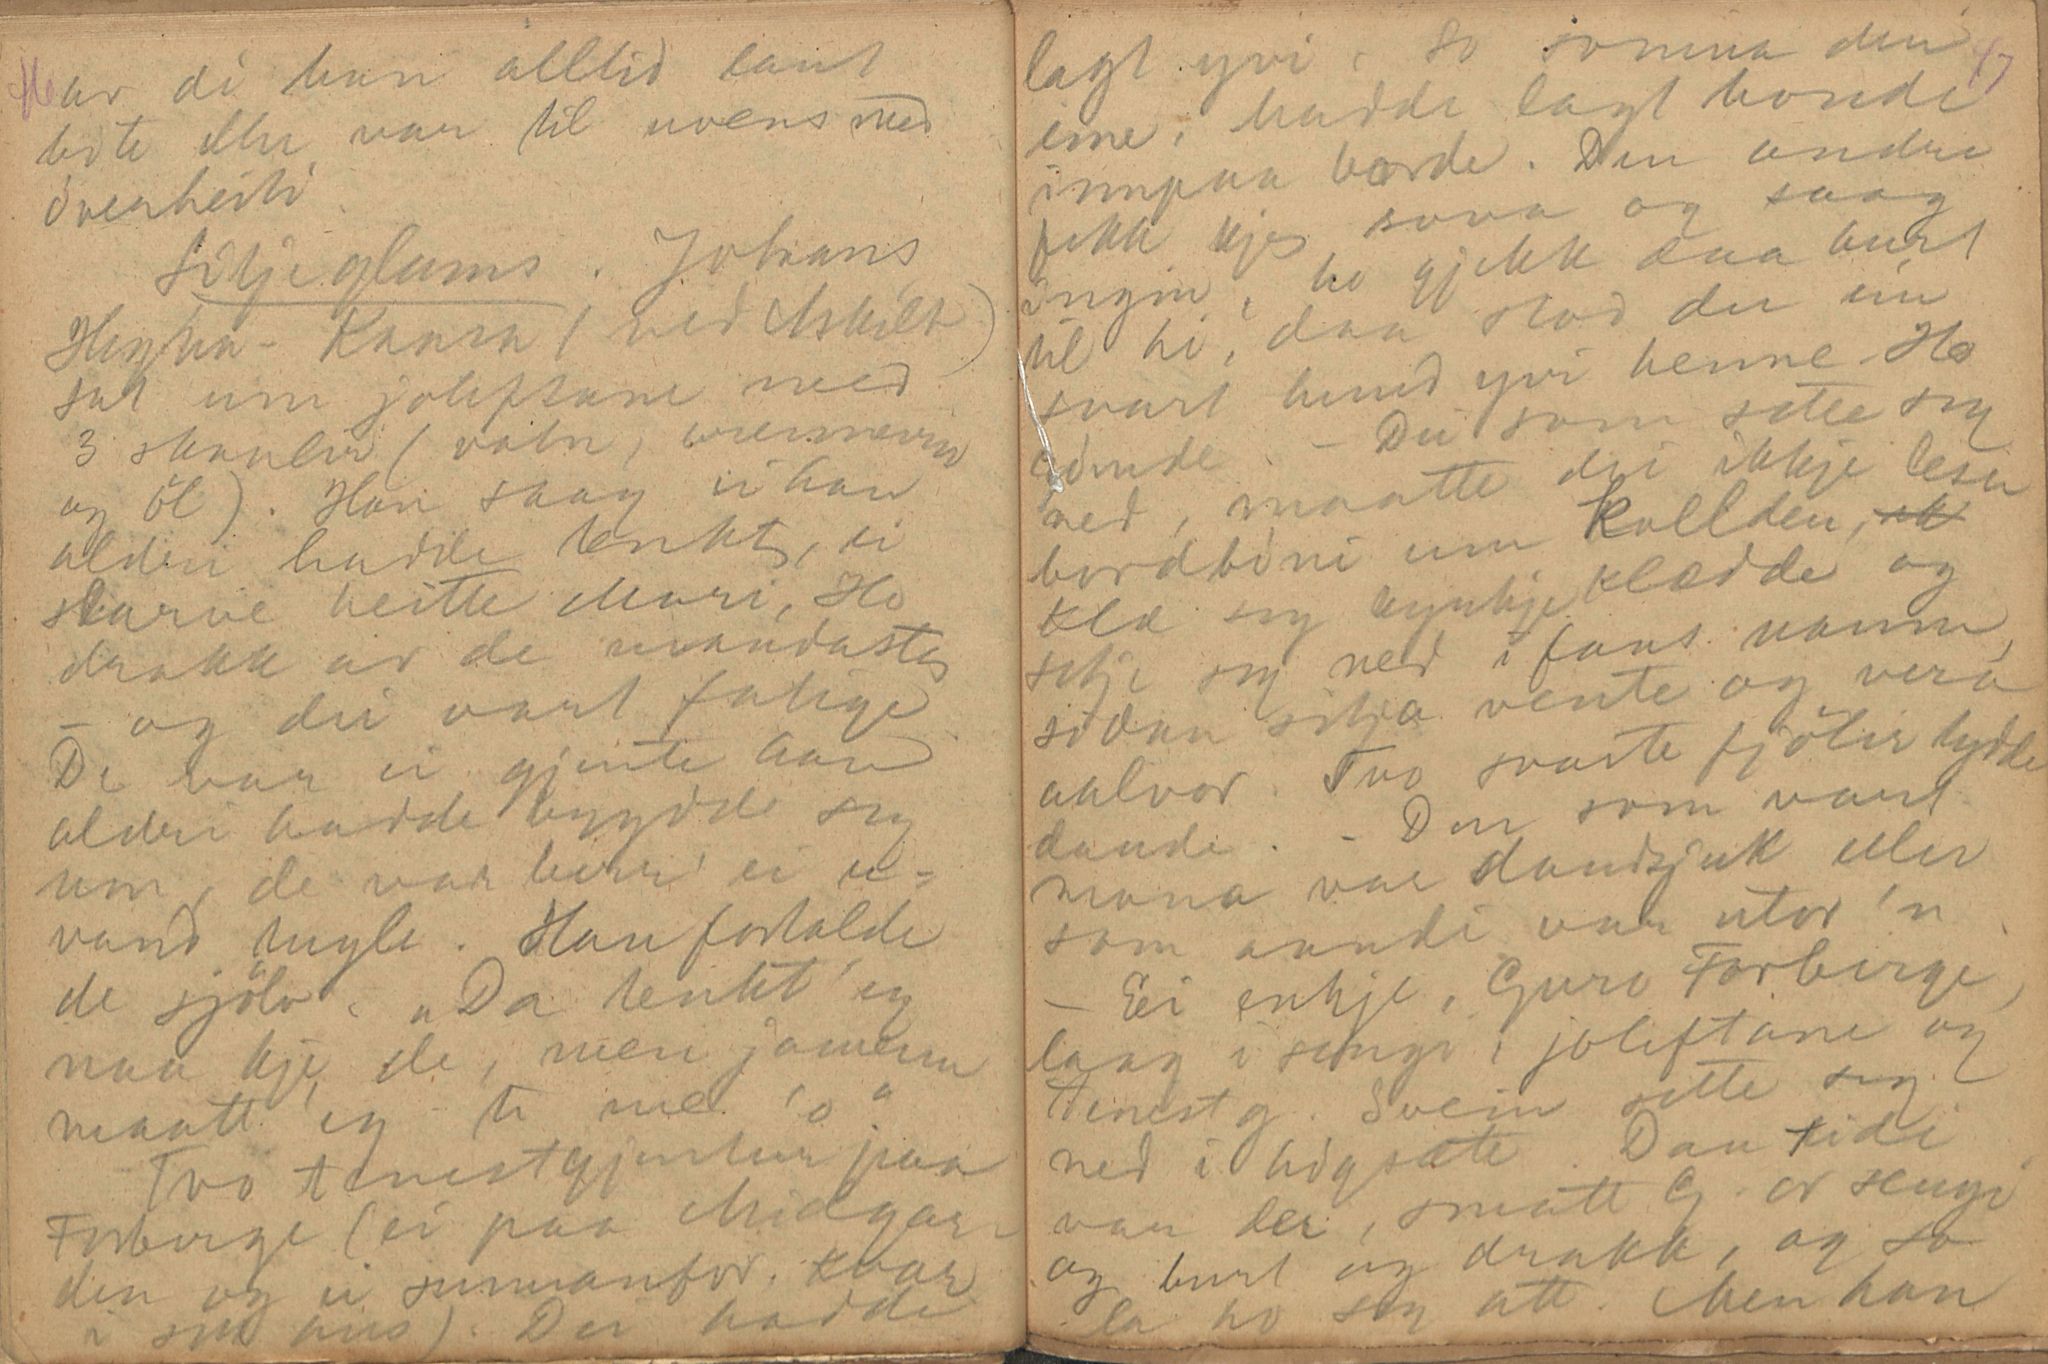 16
av di han alltid laut
bøte eller var til uvens med
överheiti
Sitjeglams. Johans
Høgha - Kaasa (ved Askilt)
sat um joleftane med
3 skaalir (vatn, brennevin
og öl). Han saag ei han
alderi hadde tenkt, ei
skarve heitte Mari, Ho
drakk av de vandaste
- og dei vart fatige
De var ei gjente han
alderi hadde brygdde seg
um, de var berr' ei u-
vand tugle. Han fortalde
de sjölv. "Da tenkt' eg
naa kje de, men jamenn
maatt' eg te me 'o"
Tvo tenestgjentur paa
Forberge (ei paa Midgar-
den og ei sunnanfor, kvar
i sit hus). Dei hadde
17
lagt yvi. So somna den
eine, hadde lagt hovude
innpaa borde. Den andre
fekk kje sova og saag
ingin, ho gjekk daa burt
til hi, daa stod der ein
svart hund yvi henne. Ho
- Dei som sette seg
ned, maatte dei ikkje lesa
bordböni um kvellden,
kle seg kynkje klædde og
setje seg ned i fans namn,
sidan sitja vente og vera
aalvor. Tvo svarte fjölir tydde
daude. - Den som vart
mana var daudsjuk eller
som aande var utor 'n
- Ei enkje, Guro Forberge,
laag i sengi i joleftane og
tenestg. Svein sette seg
ned i högsæte. Dan tidi
var der, smatt G. or sengi
og burt og drakk, og so
la ho seg att. Men han